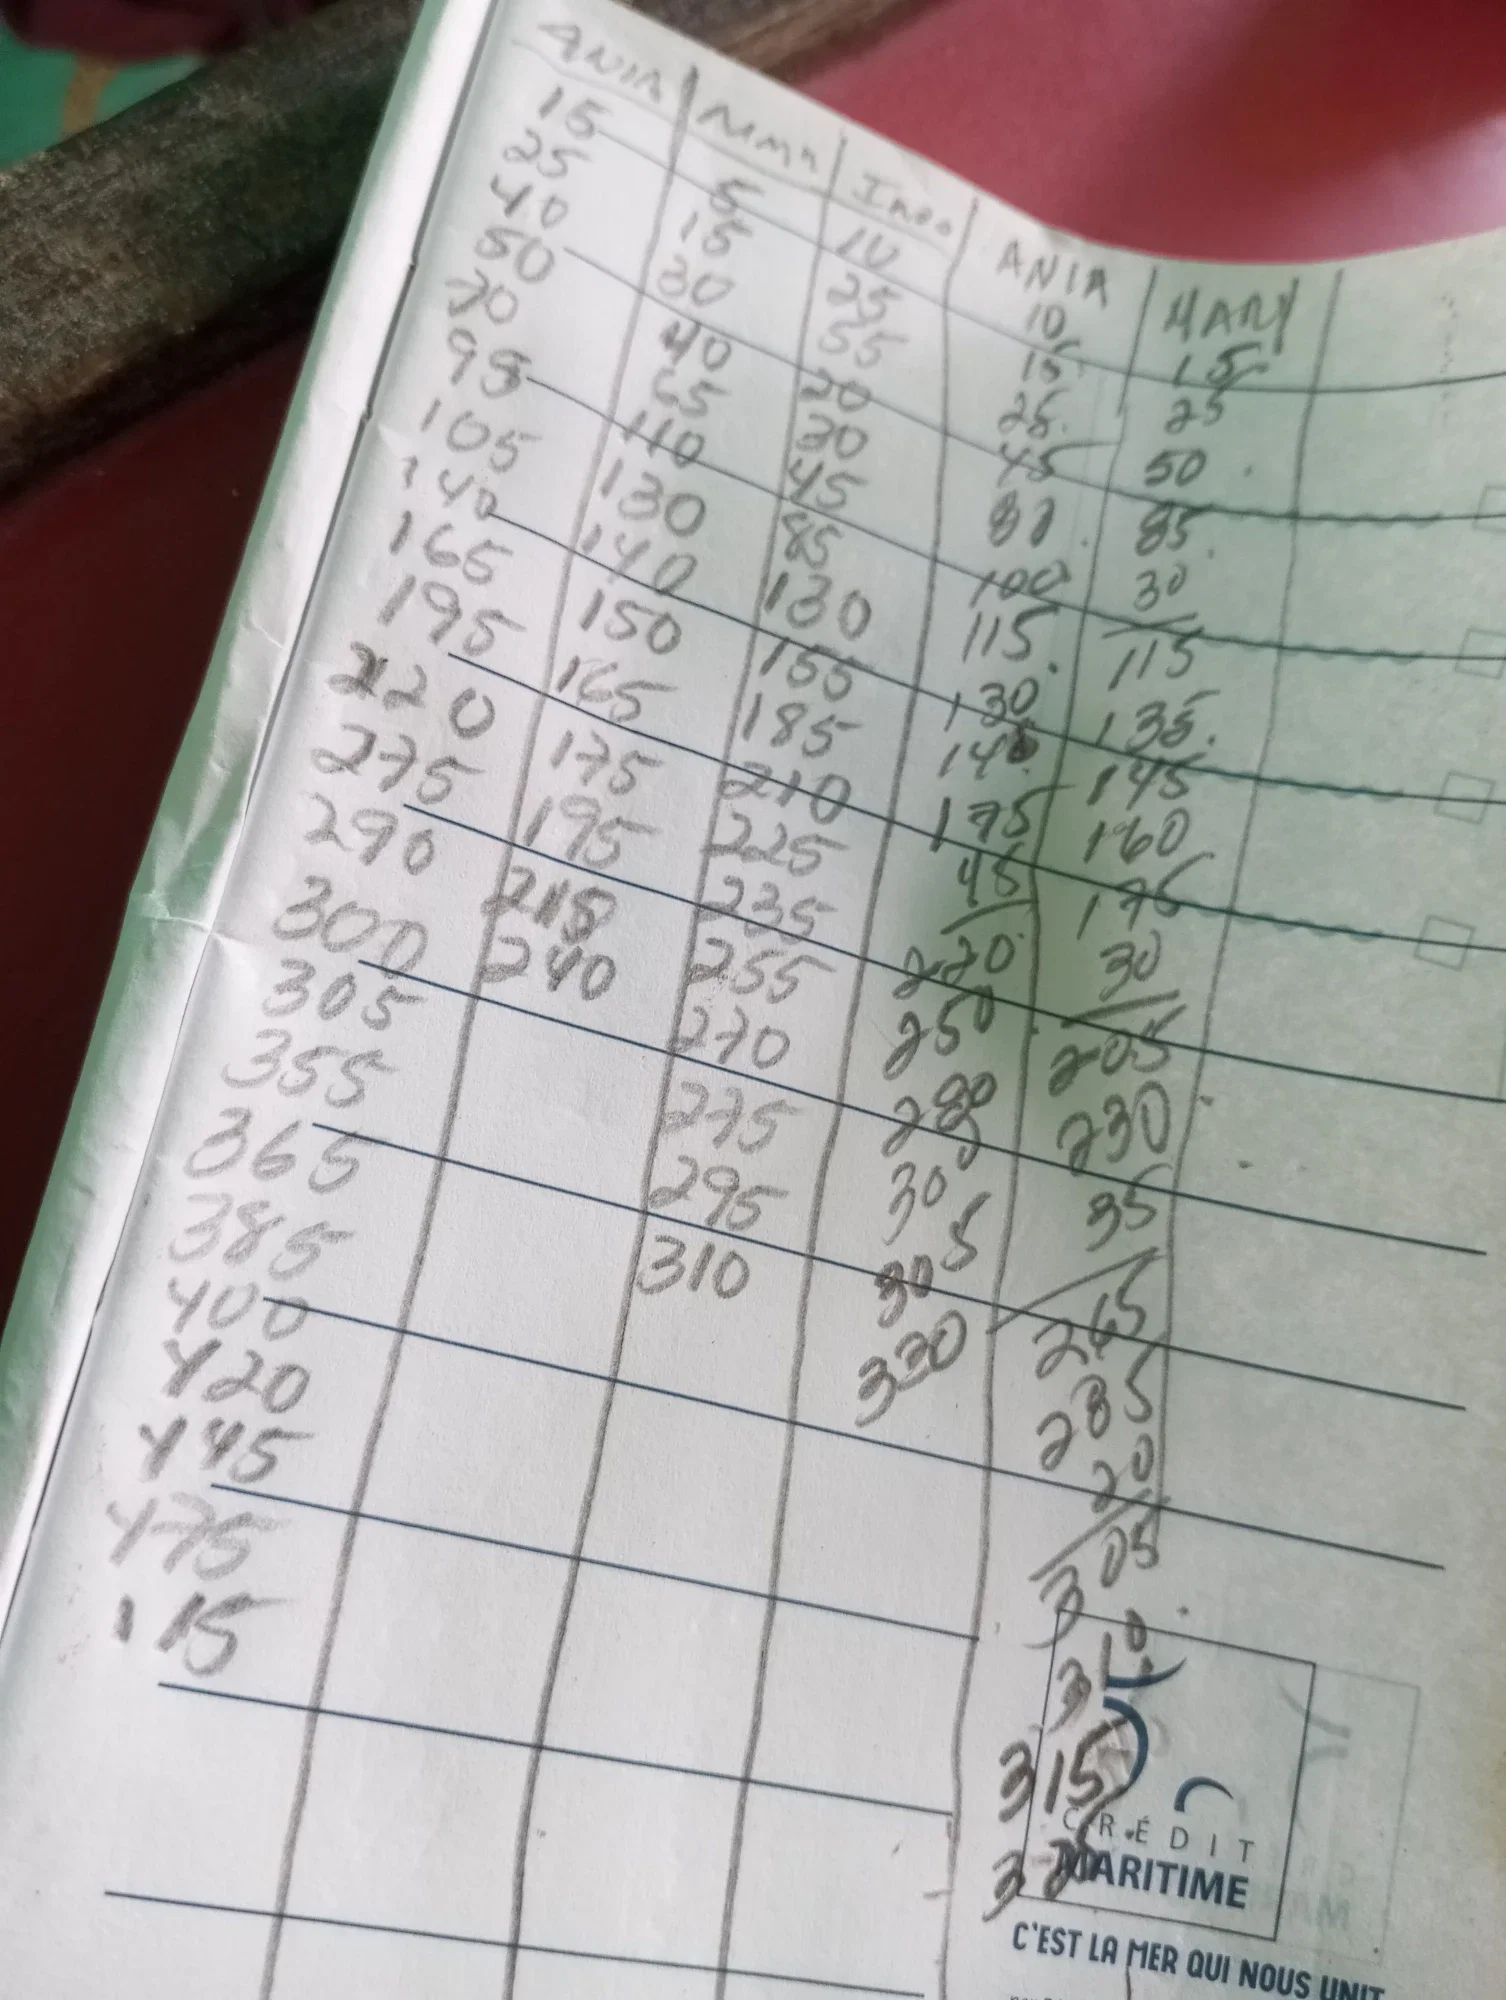 ANIA
15
25
40
50
70
95
105
140
165
195
220
275
290
300
305
355
365
385
400
420
445
475
115
5
15
30
40
65
110
130
140
150
165
175
195
215
240
10
25
55
20
30
45
85
130
155
185
210
225
235
255
270
275
295
310
ANIA
10
15
25
45
100
115
130
145
175
45
220
250
280
300
305
330
MARY
15
25
50
85
30
115
135
145
160
175
30
205
230
35
265
285
20
305
310
315
CRÉDIT
MARITIME
C'EST LA MER QUI NOUS UNIT